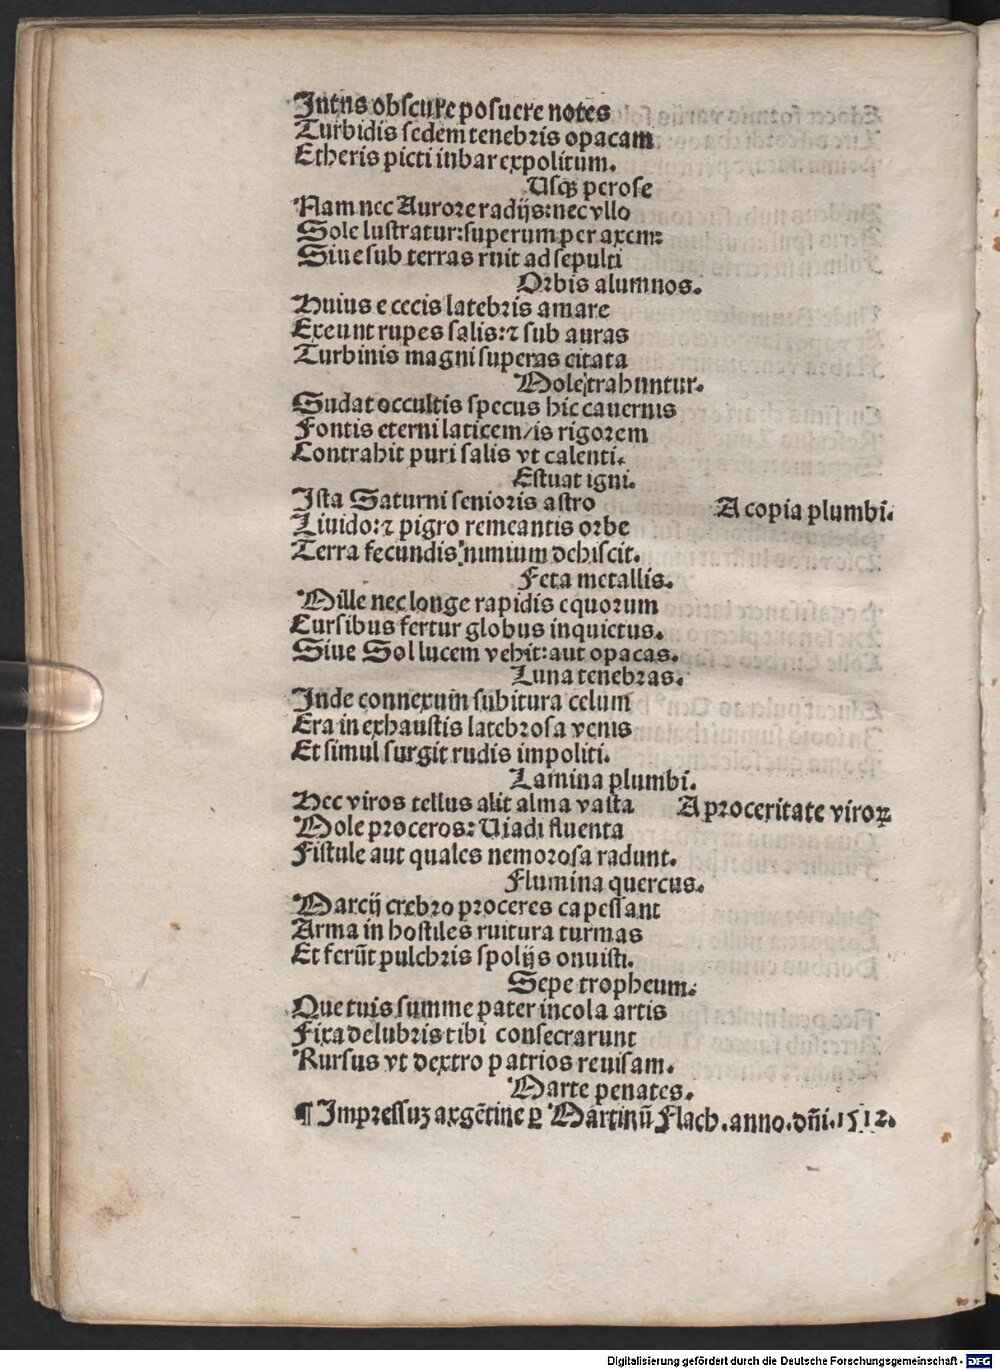 Intus obscure posuere notes
Turbidis sedem tenebris opacam
Etheris picti iubar expolitum.
Usqꝫ perose
Nam nec Aurore radijs: nec vllo
Sole lustratur: superum per axem:
Siue sub terras ruit ad sepulti
Orbis alumnos.
Huius e cecis latebris amare
Exeunt rupes salis: ⁊ sub auras
Turbinis magni superas citata
Mole trahuntur.
Sudat occultis specus hic cauernis
Fontis eterni laticem/is rigorem
Contrahit puri salis vt calenti.
Estuat igni.
Ista Saturni senioris astro
A copia plumbi.
Liuido: ⁊ pigro remeantis orbe
Terra fecundis nimium dehiscit.
Feta metallis.
Mille nec longe rapidis equorum
Cursibus fertur globus inquietus.
Siue Sol lucem vehit: aut opacas.
Luna tenebras.
Inde connexum subitura celum
Era in exhaustis latebrosa venis
Et simul surgit rudis impoliti.
Lamina plumbi.
Hec viros tellus alit alma vasta
A proceritate viroꝝ
Mole proceros: Uiadi fluenta
Fistule aut quales nemorosa radunt.
Flumina quercus.
Marcij crebro proceres capessant
Arma in hostiles ruitura turmas
Et ferūt pulchris spolijs onusti.
Sepe tropheum.
Que tuis summe pater incola artis
Fixa delubris tibi consecrarunt
Rursus vt dextro patrios reuisam.
Marte penates.
¶ Impressuꝫ argētine ꝑ Martinū Flach. anno. dñi. 1512.
Digitalisierung gefördert durch die Deutsche Forschungsgemeinschaft - DFG